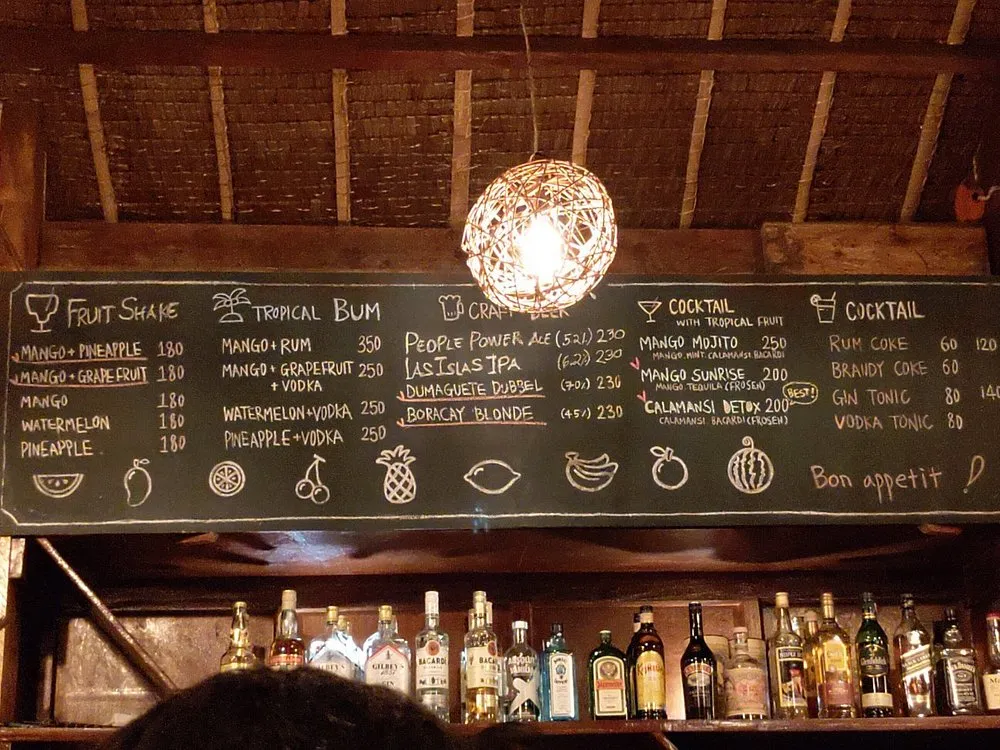 FRUIT SHAKE
MANGO + PINEAPPLE 180
MANGO + GRAPEFRUIT 180
MANGO 180
WATERMELON 180
PINEAPPLE 180
TROPICAL BUM
MANGO + RUM 350
MANGO + GRAPEFRUIT 250
+ VODKA
WATERMELON+VODKA 250
PINEAPPLE + VODKA 250
CRAFT BEER
PEOPLE POWER ALE 230
LAS ISLAS IPA 230
DUMAGUETE DUBBEL 230
BORACAY BLONDE 230
COCKTAIL
WITH TROPICAL FRUIT
MANGO MOJITO 250
MANGO. MINT. CALAMANSI. BACARDI
MANGO SUNRISE 200
MANGO. TEQUILA (FROZEN)
BEST!
CALAMANSI DETOX 200
CALAMANSI. BACARDI (FROSEN)
COCKTAIL
RUM COKE 60 120
BRANDY COKE 60
GIN TONIC 80 140
VODKA TONIC 80
Bon appetit
GILBEY'S
GILBEY'S
BACARDI
BACARDI
ABSOLUT